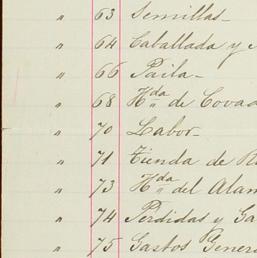 " 63 Semillas
" 64 Caballada y
" 66 Paila
" 68 Hda de
" 70 Labor
" 71 Tienda de
" 73 Hda del
" 74 Perdidas y
" 75 Gastos